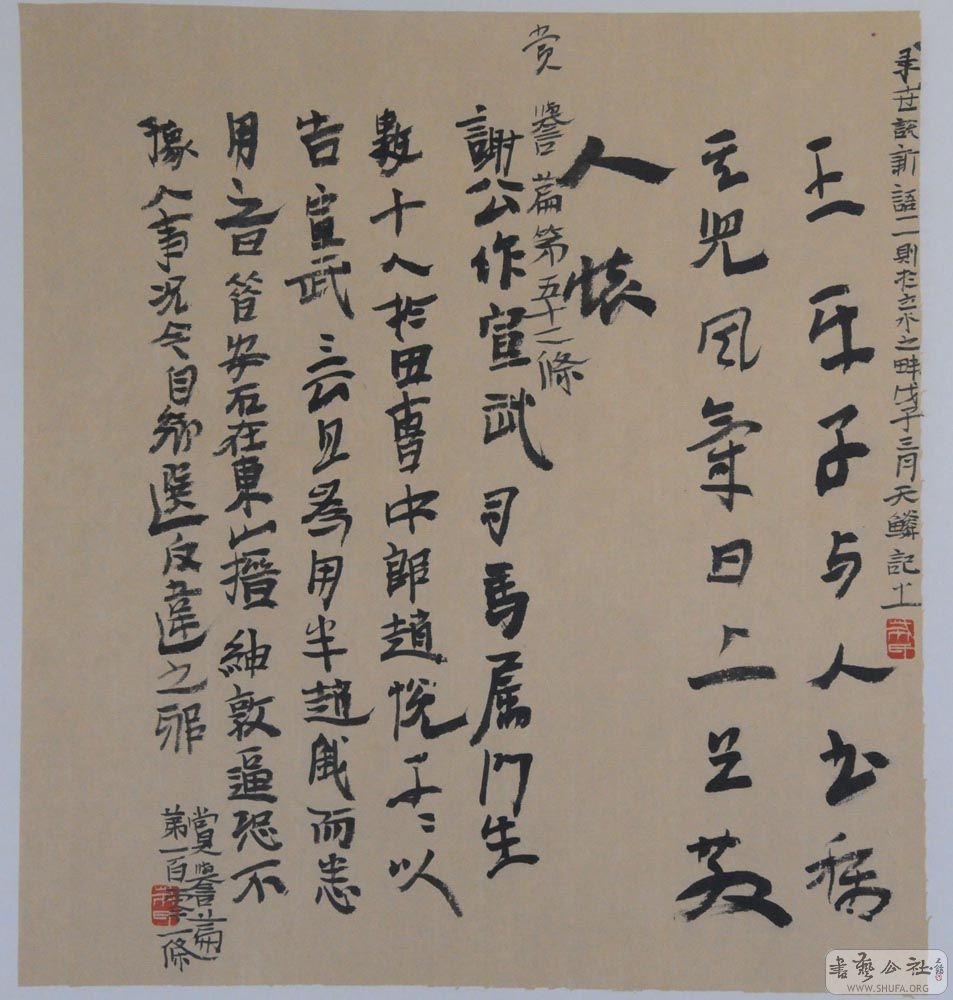 世說新語二則於立水之畔戊子三月天鱗記
王平子与人书称
其兒風氣日上足散
人懷
賞譽篇第五十二條
謝公作宣武司馬属门生
數十人於田曹中郎趙悅子〻以
告宣武〻云且為用半趙俄而悉
用之曰昔安石在東山搢紳敦逼恐不
豫人事况今自鄉選反違之邪
賞譽篇
第一百零二條
書藝公社
WWW.SHUFA.ORG